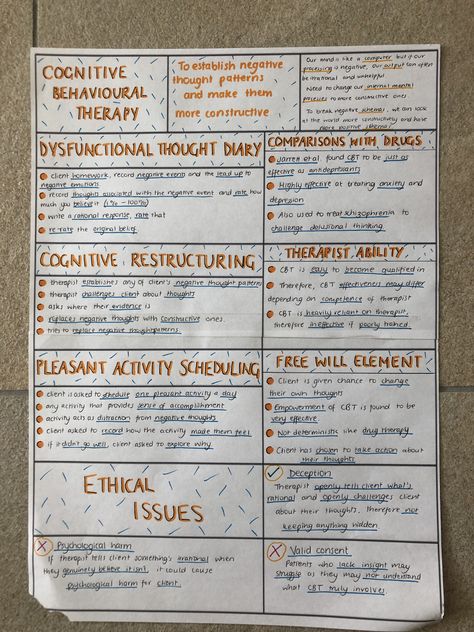 COGNITIVE
BEHAVIOURAL
THERAPY
To establish negative
thought patterns
and make them
more constructive
Our mind is like a computer but if our
processing is negative, our output can often
be irrational and unhelpful
Need to change our internal mental
processes to more constructive ones
To break negative schemas, we can look
at the world more constructively and have
more positive schemas
DYSFUNCTIONAL THOUGHT DIARY
client homework, record negative events and the lead up to
negative emotions
record thoughts associated with the negative event and rate how
much you believe it (1% - 100%)
write a rational response, rate that
re-rate the original belief
COMPARISONS WITH DRUGS
Jarrett et al found CBT to be just as
effective as antidepressants
Highly effective at treating anxiety and
depression
Also used to treat schizophrenia to
challenge delusional thinking
COGNITIVE RESTRUCTURING
therapist establishes any of client's negative thought patterns
therapist challenges client about thoughts
asks where their evidence is
replaces negative thoughts with constructive ones
tries to replace negative thought patterns
THERAPIST ABILITY
CBT is easy to become qualified in
Therefore, CBT effectiveness may differ
depending on competence of therapist
CBT is heavily reliant on therapist,
therefore ineffective if poorly trained
PLEASANT ACTIVITY SCHEDULING
client asked to schedule one pleasant activity a day
any activity that provides sense of accomplishment
activity acts as distraction from negative thoughts
Client asked to record how the activity made them feel
if it didn't go well, client asked to explore why
FREE WILL ELEMENT
Client is given chance to change
their own thoughts
Empowerment of CBT is found to be
very effective
Not deterministic like drug therapy
Client has chosen to take action about
their thoughts
ETHICAL
ISSUES
Deception
Therapist openly tells client what's
rational and openly challenges client
about their thoughts. Therefore not
keeping anything hidden
Psychological harm
If therapist tells client something's irrational when
they genuinely believe it isn't, it could cause
psychological harm for client
Valid consent
Patients who lack insight may
struggle as they may not understand
what CBT truly involves